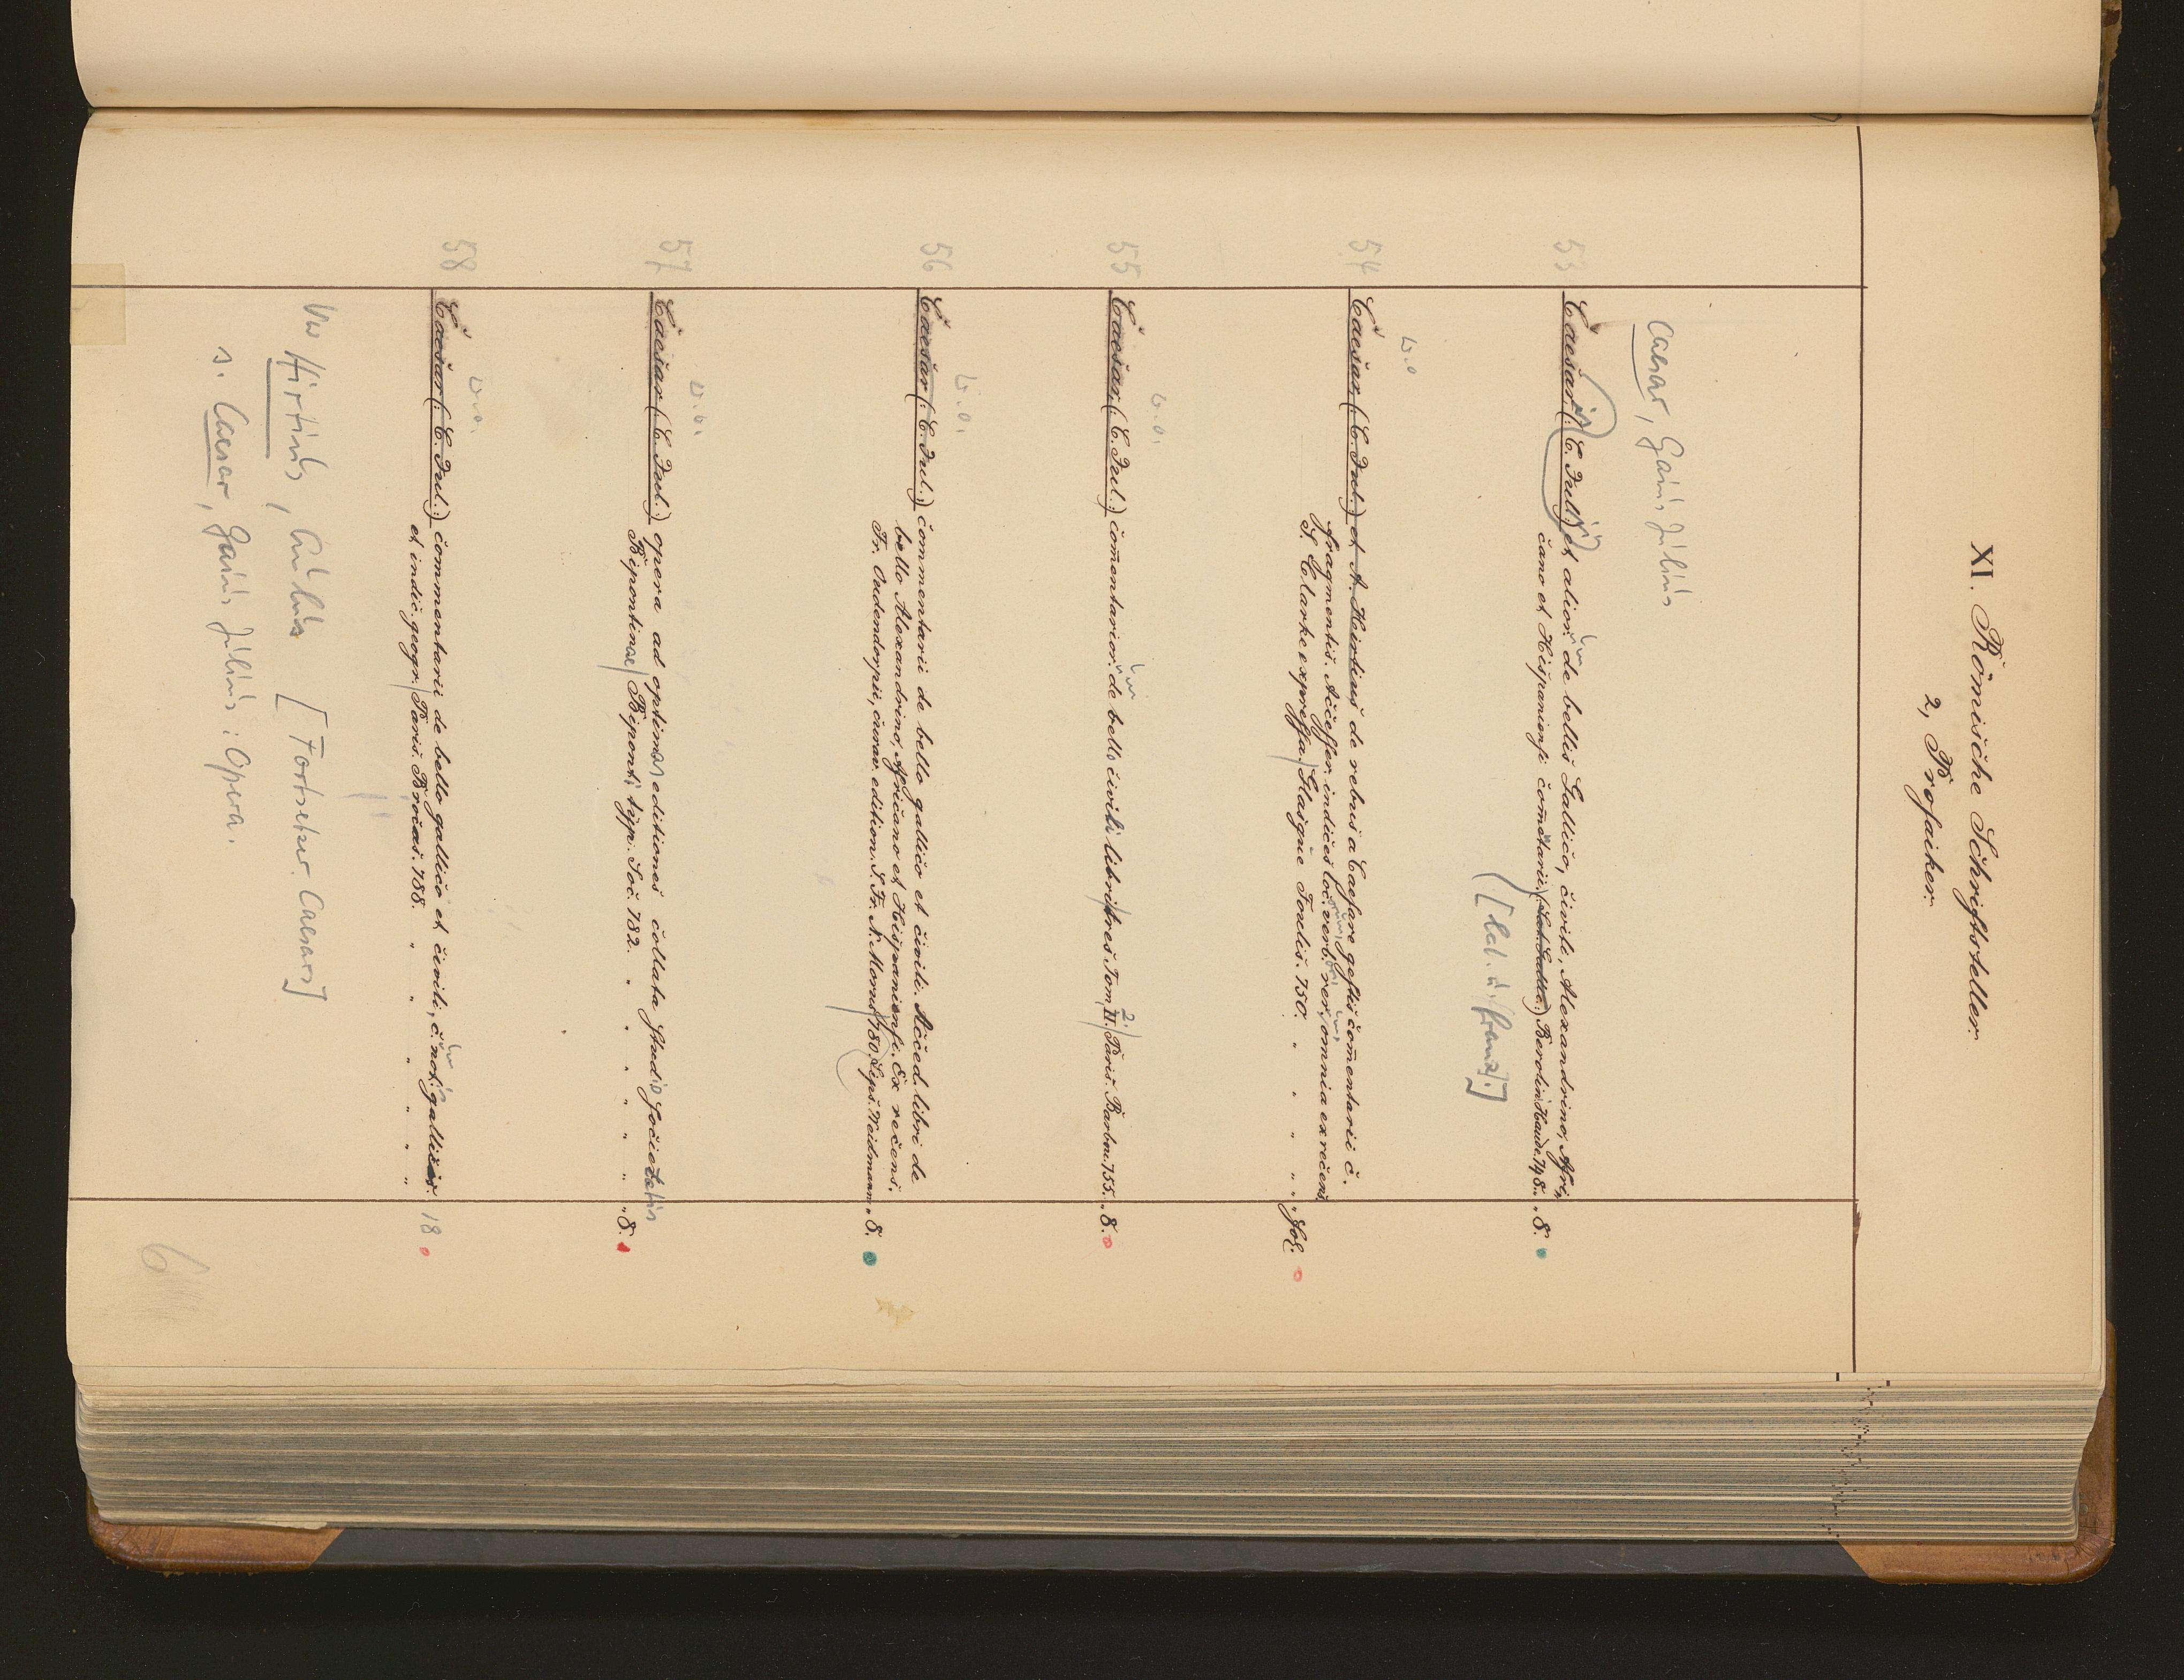 XI. Römische Schriftsteller
2, Prosaiker.
Caesar, Gaius Julius
53 Caesar (: C. Jul:) et alior. de bellis Gallico, civile, Alexandrino, Afri-
cano et Hispaniensi com̄tarii (Lat. Gallice) Berolini Haude. 748. „ 8.
([lat. u. franz.])
w.o
54 Caesar (: C. Jul.:) et A. Heirtius de rebus a Caesare gestis com̄entarii c.
fragmentis. Accesser. indices loc. verb. rer. omnia ex recens.
S. Clarke expressa. Glasgue Foulis. 750. „ „ „ „ „ fol.
w.o.
55 Caesar (: C. Jul.:) com̄entarior. de bello civili libri tres. Tom. II. 2. Paris. Barbou. 755. „ 8.
w.o.
56 Caesar (: C. Jul.:) commentarii de bello gallico et civile. Acced. libri de
bello Alexandrino, Africano et Hispaniensi. Ex recens.
Fr. Oudendorpii, curav. edition. S. Fr. N. Morus 780. Lips. Weidmann. „ 8.
w.o.
57 Caesar (: C. Jul.:) opera ad optimas editiones collata studio societatis
Bipontinae Biponti typ. Soc. 782. „ „ „ „ „ 8.
w.o.
58 Caesar (: C. Jul.:) commentarii de bello gallico et civili, c. not. gallicis.
et indic. geogr. Paris. Brocas. 788. „ „ „ „ „ „ 18
Vw Hirtius, Aulus [Fortsetzer Caesars]
s. Caesar, Gaius Julius: Opera.
6